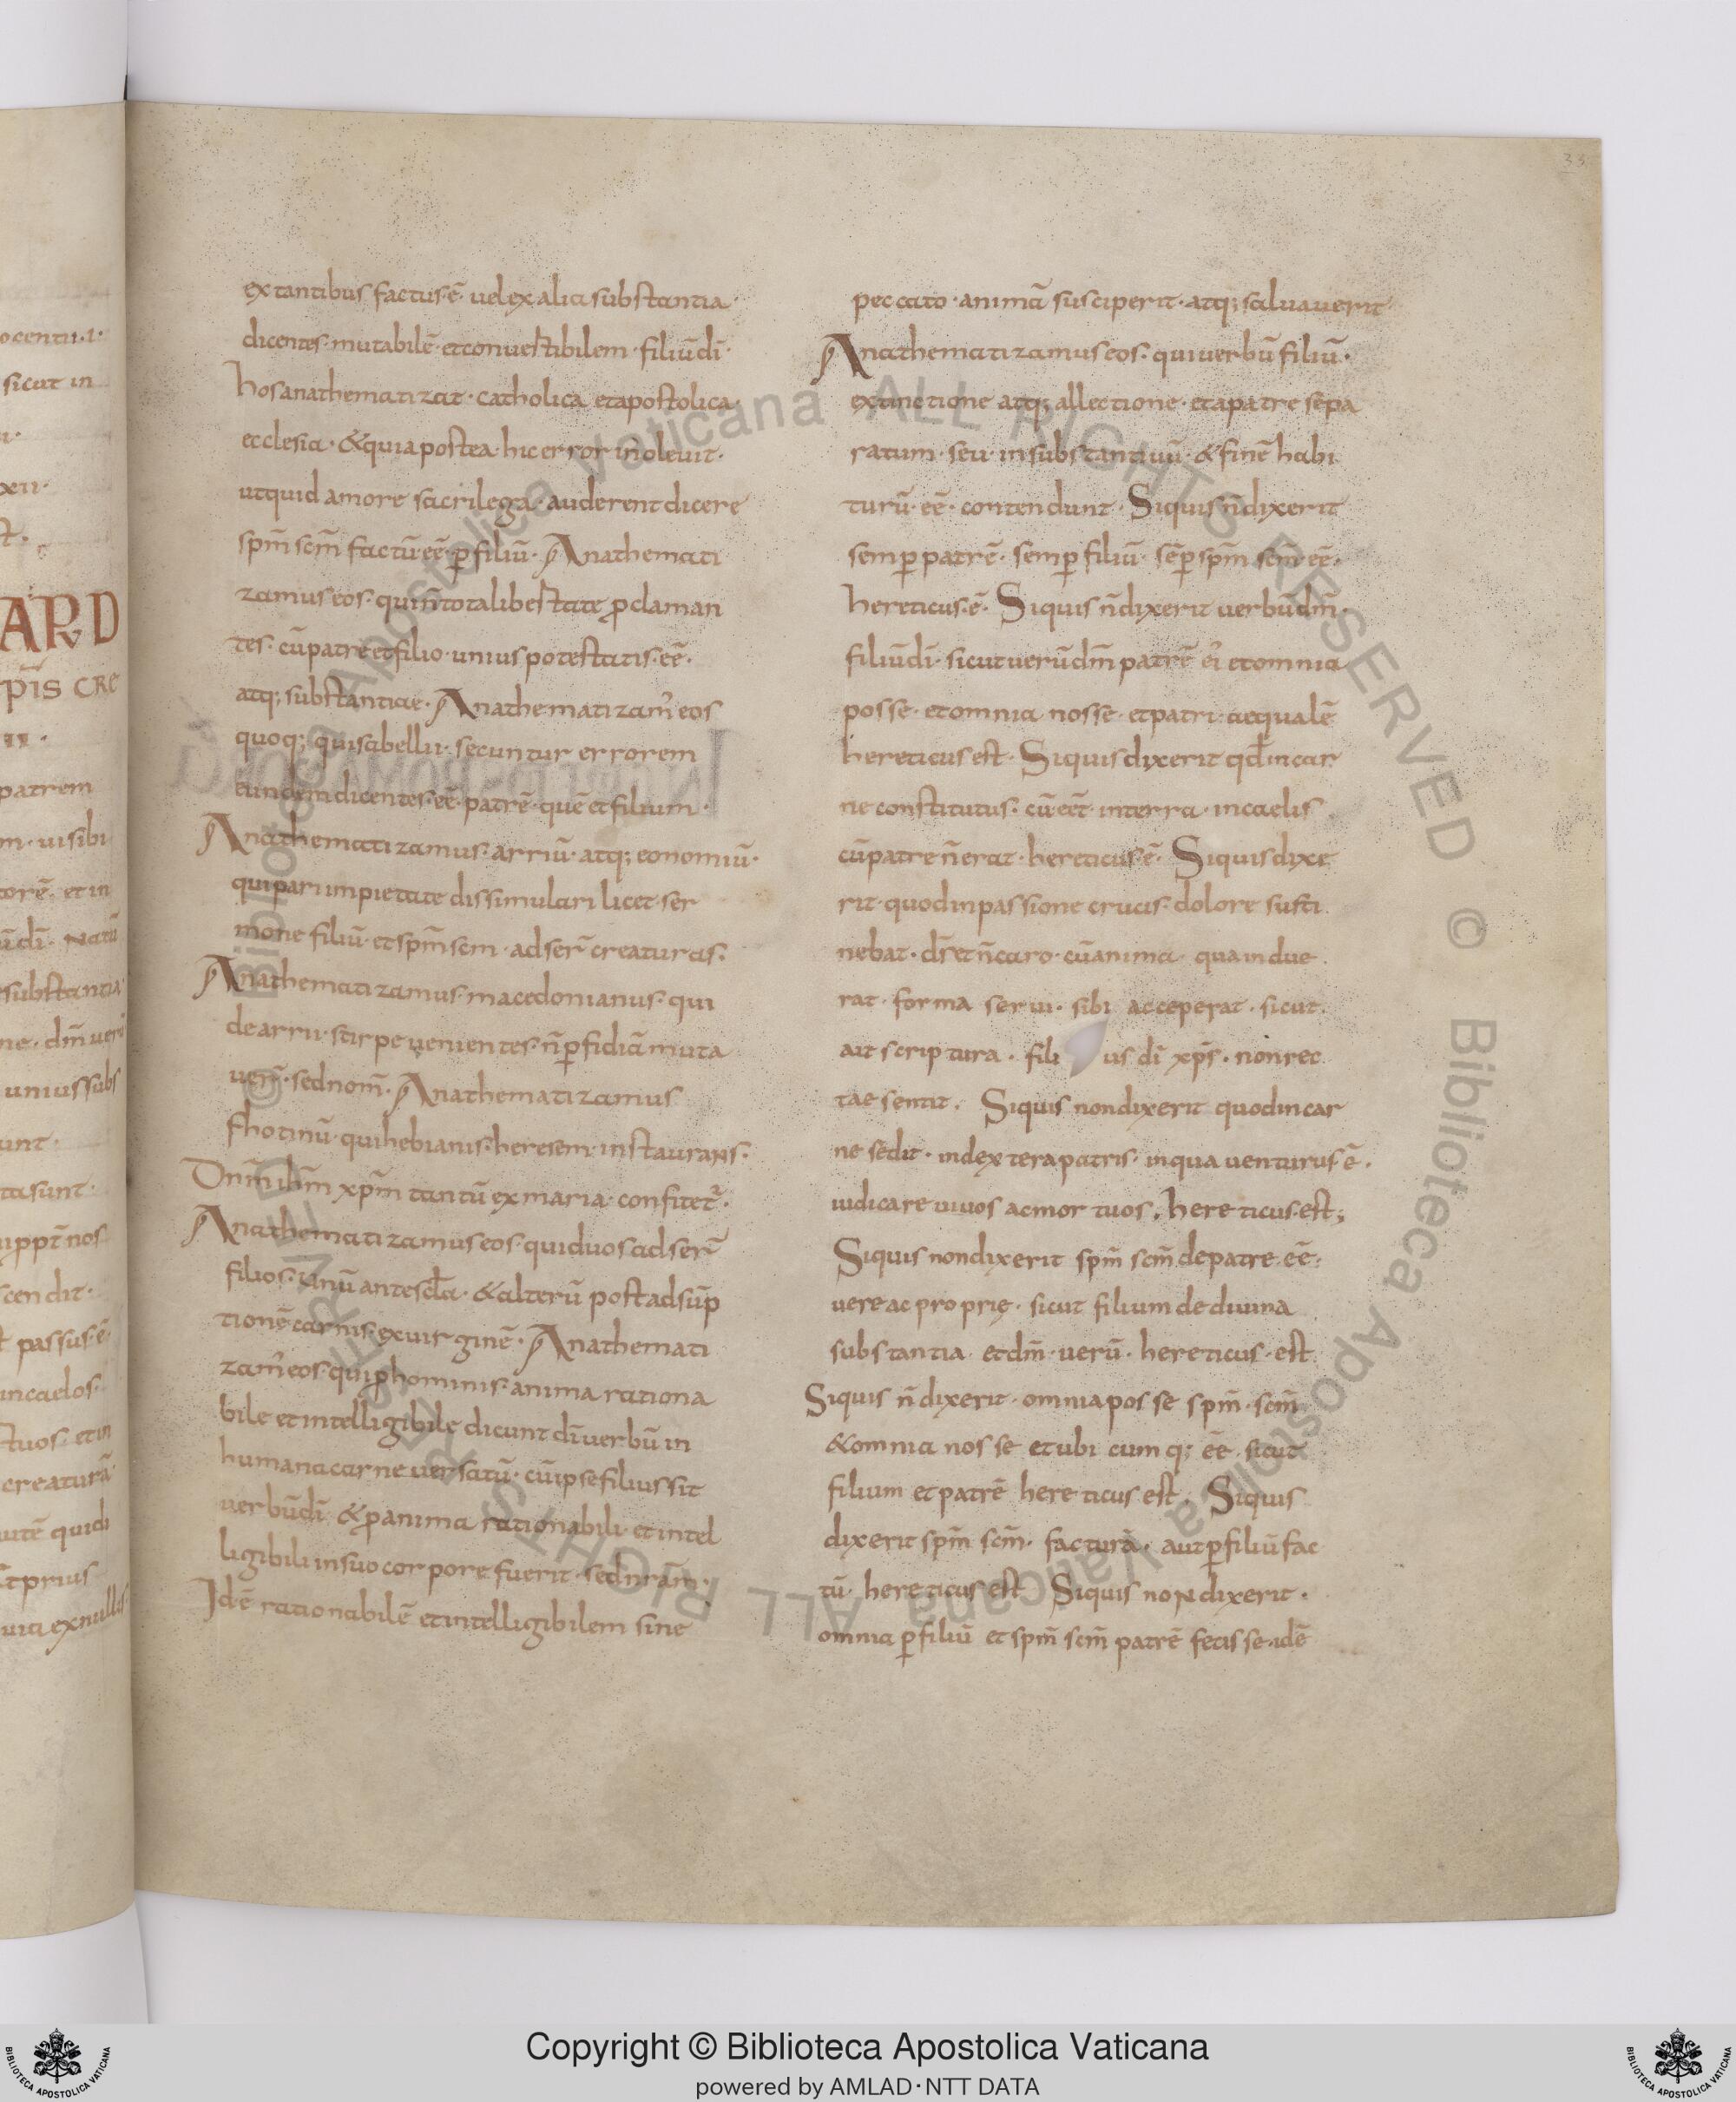 33
ocentii.i·
sicut in
xii·
ARD
pīs cre
ii·
patrem
m· uisibi
torē· et in
ūdī· natū
substantia
ne· dm̄ uerū
unius subs
unt·
ta sunt·
ui ppt̄ nos
scendit·
t passus·ē·
incaelos·
tuos· et in
creaturā
uitē quidi
t prius
uia exnullis·
extantibus factus·ē· uel ex alia substantia·
dicentes· mutabilē· et conuestibilem· filiūdī·
hos anathematizat· catholica et apostolica·
ecclesia· & quia postea· hic error inoleuit·
ut quid amore sacrilega· auderent dicere
spm̄ scm̄ factū eē· p̱ filiū· Anathemati
zamus eos· qui n̄ tota libestate ꝓclaman
tes· cū patre et filio· unius potestatis· eē·
atq; substantiae· Anathematizam᾽ eos
quoq; qui sabellii· secuntur errorem
eundem dicentes· eē· patrē· quē et filium·
Anathematizamus· arriū· atq; eonomiū·
qui pari impietate dissimulari licet ser
mone filiū· et spm̄ scm· adser̄ creaturas·
Anathematizamus· macedonianus· qui
de arrii· stirpe uenientes· n̄ p̱fidiā muta
uer̄· sed nom̄· Anathematizamus
fhotinū· qui hebianis· heresem· instaurans·
Dnm̄ ihm̄ xpm̄ tantū ex maria· confitet᾽·
Anathematizamus eos· qui duos adser̄
filios· unū ante scl̄a· & alterū post adsūp
tionē carnis· ex uirginē· Anathemati
zam᾽ eos· qui ꝓ hominis· anima rationa
bile et intelligibile dicunt dī uerbū in
humana carne uersatū· cū ipse filius sit
uerbūdī & ꝓ anima rationabili· et intel
ligibili in suo corpore fuerit· sed nr̄am·
Idē rationabilē et intelligibilem sine
peccato· animā susciperit· atq; saluauerit
Anathematizamus eos· qui uerbū filiū·
extinctione atq; allectione· et a patre sēpa
ratum· seu· insubstantiuū· & finē habi
turū· eē· contendunt· Siquis n̄ dixerit
semp̱ patrē· semp̱ filiū· sēp̱ spm̄ scm̄ eē·
hereticus·ē· Siquis n̄ dixerit uerbū dm̄·
filiūdī· sicut uerūdm̄ patrē ei᾽ et omnia
posse· et omnia nosse· et patri· aequalē
hereticus est· Siquis dixerit qd̄ in car
ne constitutus· cū eēt· in terra· in caelis
cū patre n̄ erat· hereticus·ē· Siquis dixe
rit· quod in passione crucis· dolore susti
nebat· dī et n̄ caro· cū anima· qua indue
rat· forma serui· sibi acceperat· sicut
ait scriptura· fili us dī xp̄s· non rec
tae sentit· Siquis non dixerit quod in car
ne sedit· in dextera patris· in qua uenturus·ē·
iudicare uiuos ac mortuos· hereticus· est;
Siquis non dixerit spm̄ scm̄ de patre· eē·
uere ac proprię· sicut filium de diuina
substantia et dm̄· uerū· hereticus· est
Siquis n̄ dixerit· omnia posse spm̄· scm̄
& omnia nosse et ubi cumq; eē· sicut
filium et patrē hereticus est· Siquis
dixerit spm̄ scm̄· facturā· aut p̱ filiū fac
tū· hereticus est Siquis non dixerit·
omnia p̱ filiū et spm̄ scm̄ patrē fecisse· idē
© Biblioteca Apostolica Vaticana ALL RIGHTS RESERVED © Biblioteca Apostolica Vaticana ALL RIGHTS RESERVED
Copyright © Biblioteca Apostolica Vaticana
powered by AMLAD·NTT DATA
BIBLIOTECA APOSTOLICA VATICANA
BIBLIOTECA APOSTOLICA VATICANA